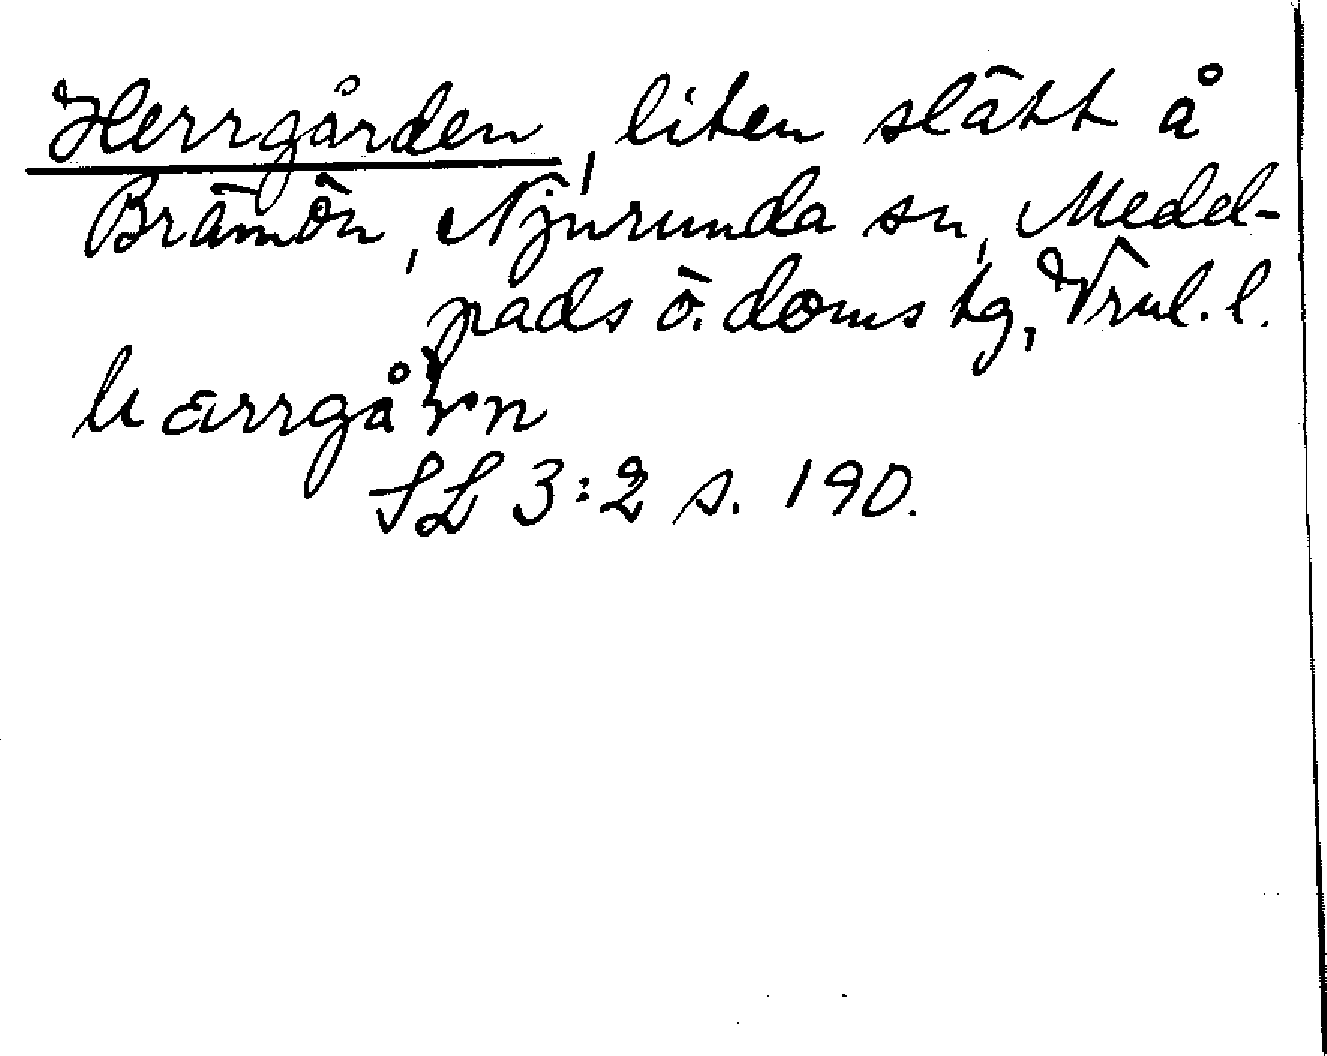 Herrgården, liten slätt å
Brämön, Njurunda sn, Medel-
pads ö. doms tg, Vrnl. l.
hærrgå̊rn
SL 3:2 s. 190.